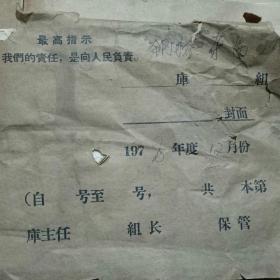 最高指示
我們的責任，是向人民負責。
庫 組
封面
197 年度12月份
(自 号至 号， 共 本第
庫主任 組长 保管